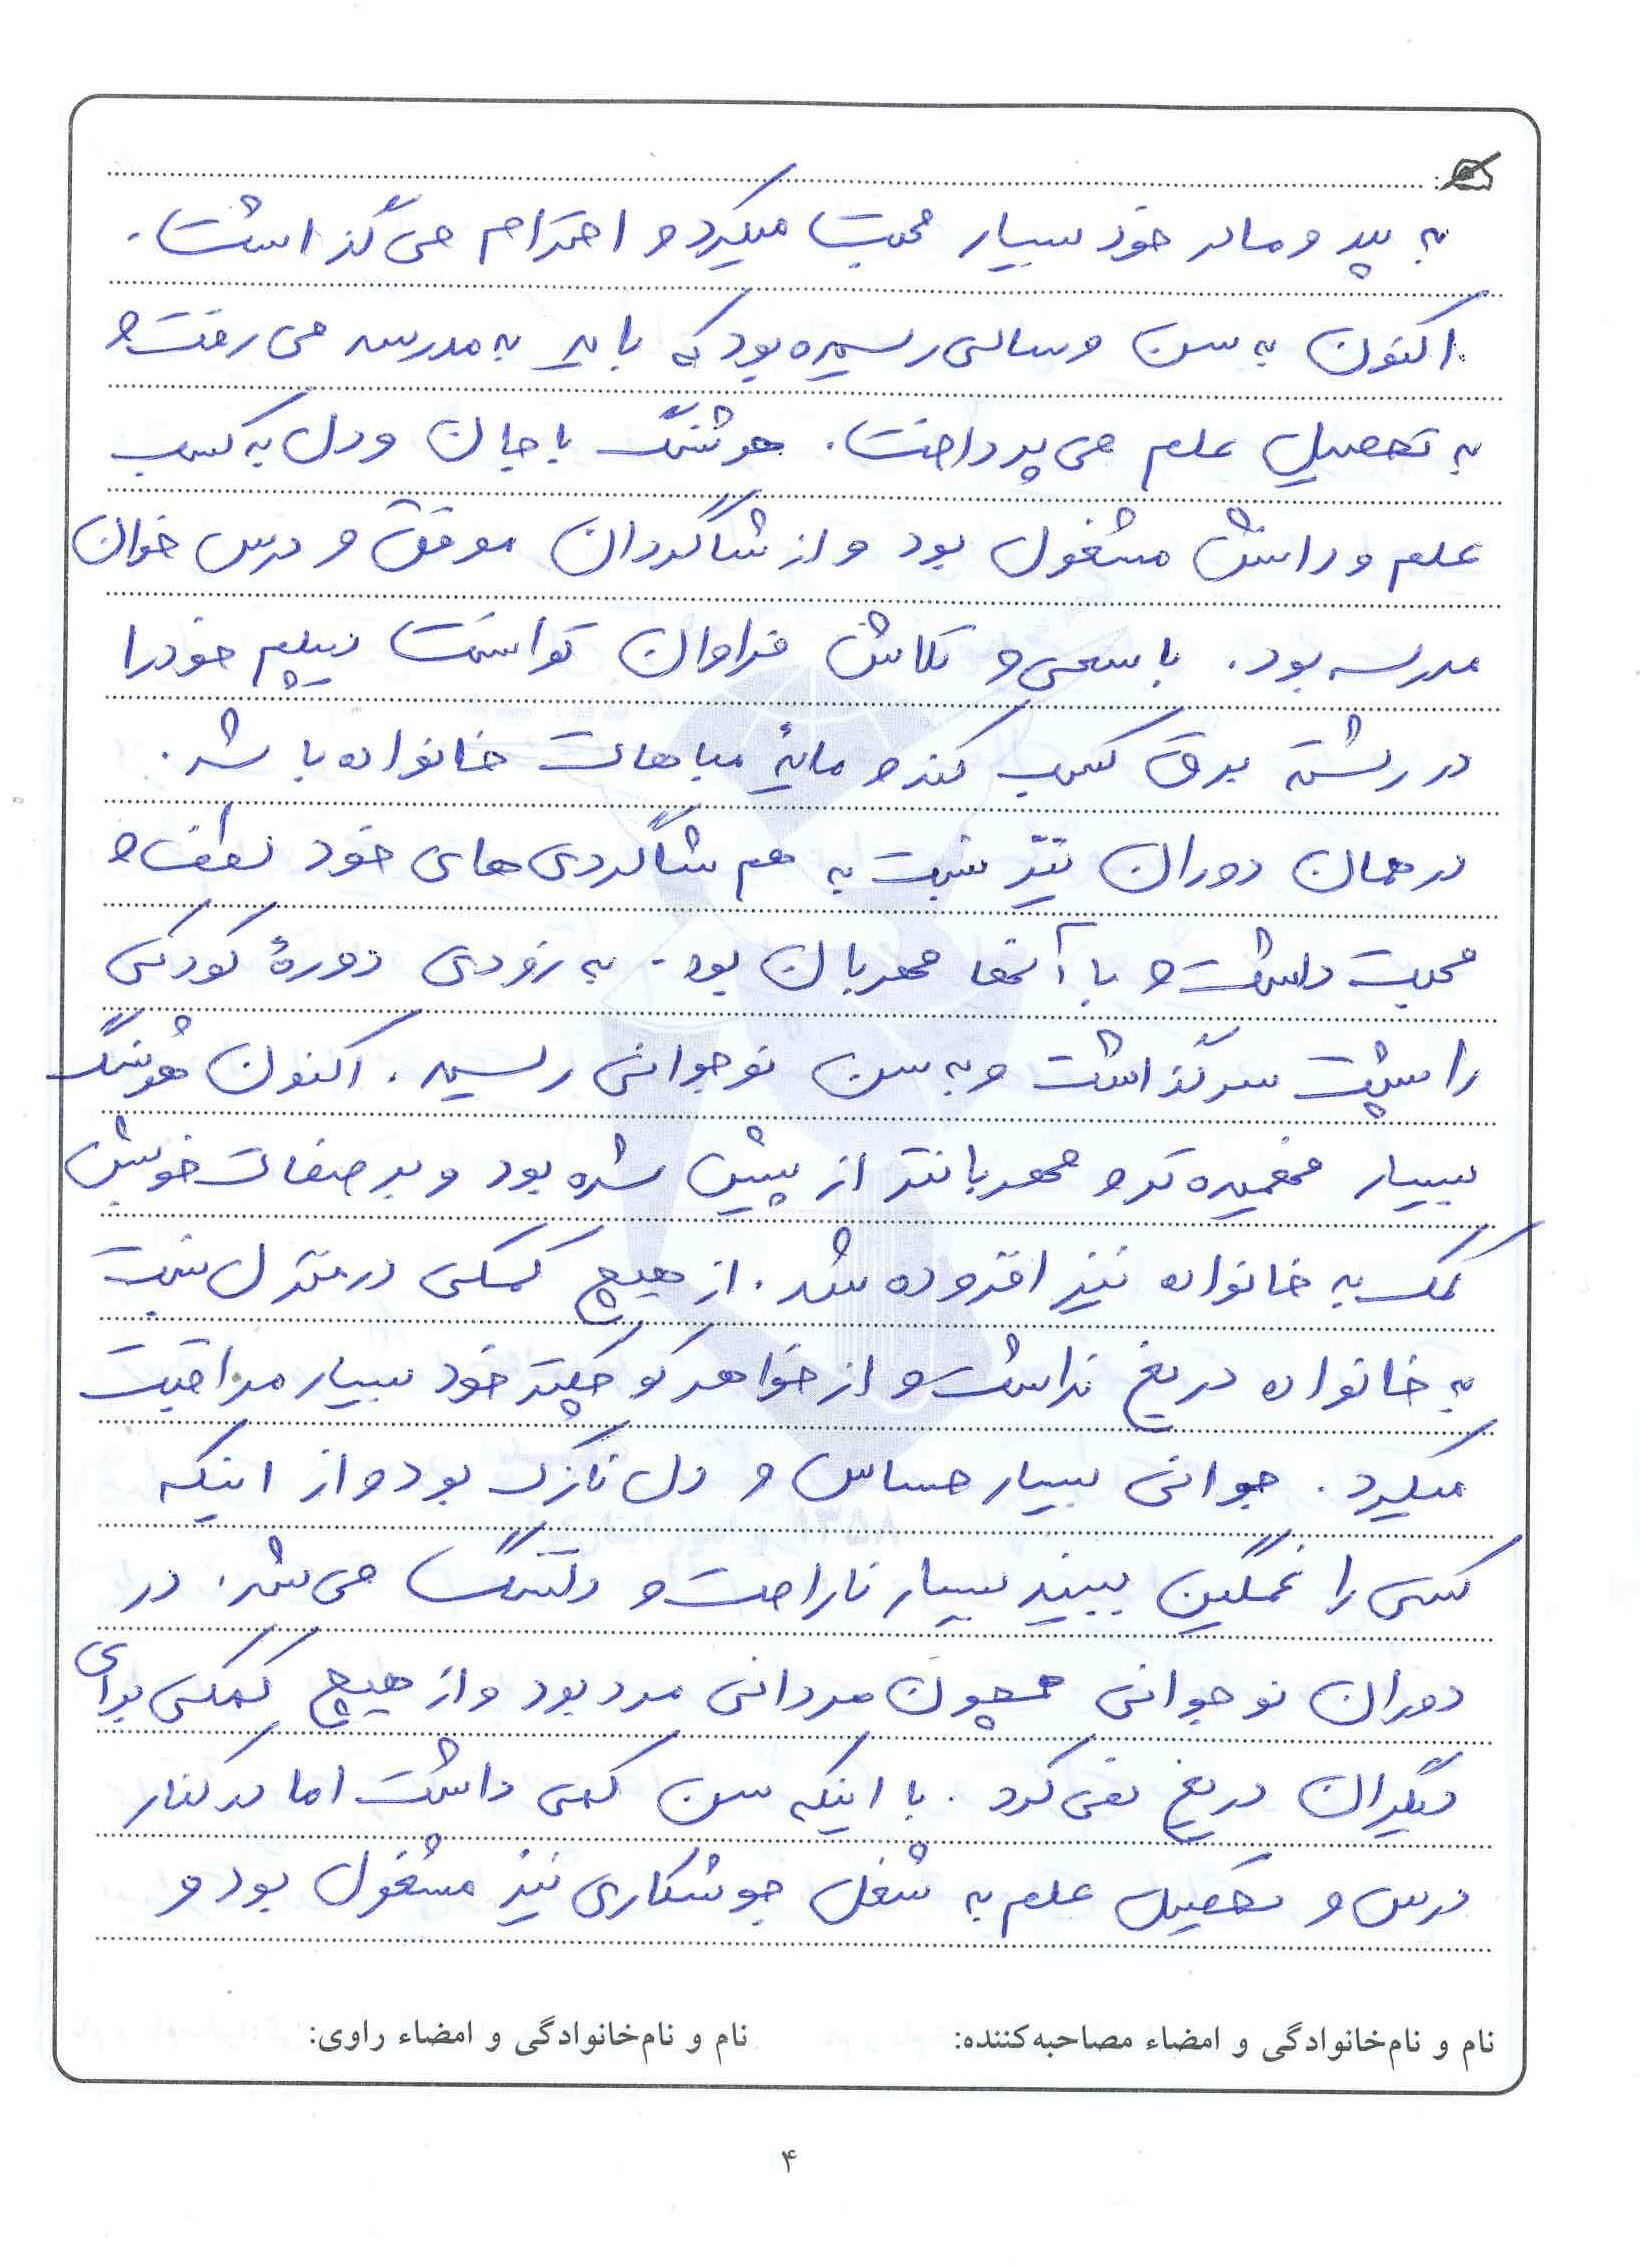 به پدر و مادر خود بسیار محبت میکرد و احترام می گذاشت.
اکنون به سن و سالی رسیده بود که باید به مدرسه می رفت و
به تحصیل علم می پرداخت. هوشنگ با جان و دل به کسب
علم و دانش مشغول بود و از شاگردان موفق و درس خوان
مدرسه بود. با سعی و تلاش فراوان توانست دیپلم خود را
در رشته برق کسب کند و مایۀ مباهات خانواده باشد.
در همان دوران نیز نسبت به هم شاگردی های خود لطف و
محبت داشت و با آنها مهربان بود. به زودی دورۀ کودکی
را پشت سر گذاشت و به سن نوجوانی رسید. اکنون هوشنگ
بسیار فهمیده تر و مهربانتر از پیش شده بود و بر صفات خوبش
کمک به خانواده نیز افزوده شد. از هیچ کمکی در منزل نسبت
به خانواده دریغ نداشت و از خواهر کوچکتر خود بسیار مراقبت
میکرد. جوانی بسیار حساس و دل نازک بود و از اینکه
کسی را غمگین ببیند بسیار ناراحت و دلتنگ می شد. در
دوران نوجوانی همچون مردانی مرد بود و از هیچ کمکی برای
دیگران دریغ نمی کرد. با اینکه سن کمی داشت اما در کنار
درس و تحصیل علم به شغل جوشکاری نیز مشغول بود و
نام و نام‌خانوادگی و امضاء مصاحبه‌کننده: نام و نام‌خانوادگی و امضاء راوی:
۴